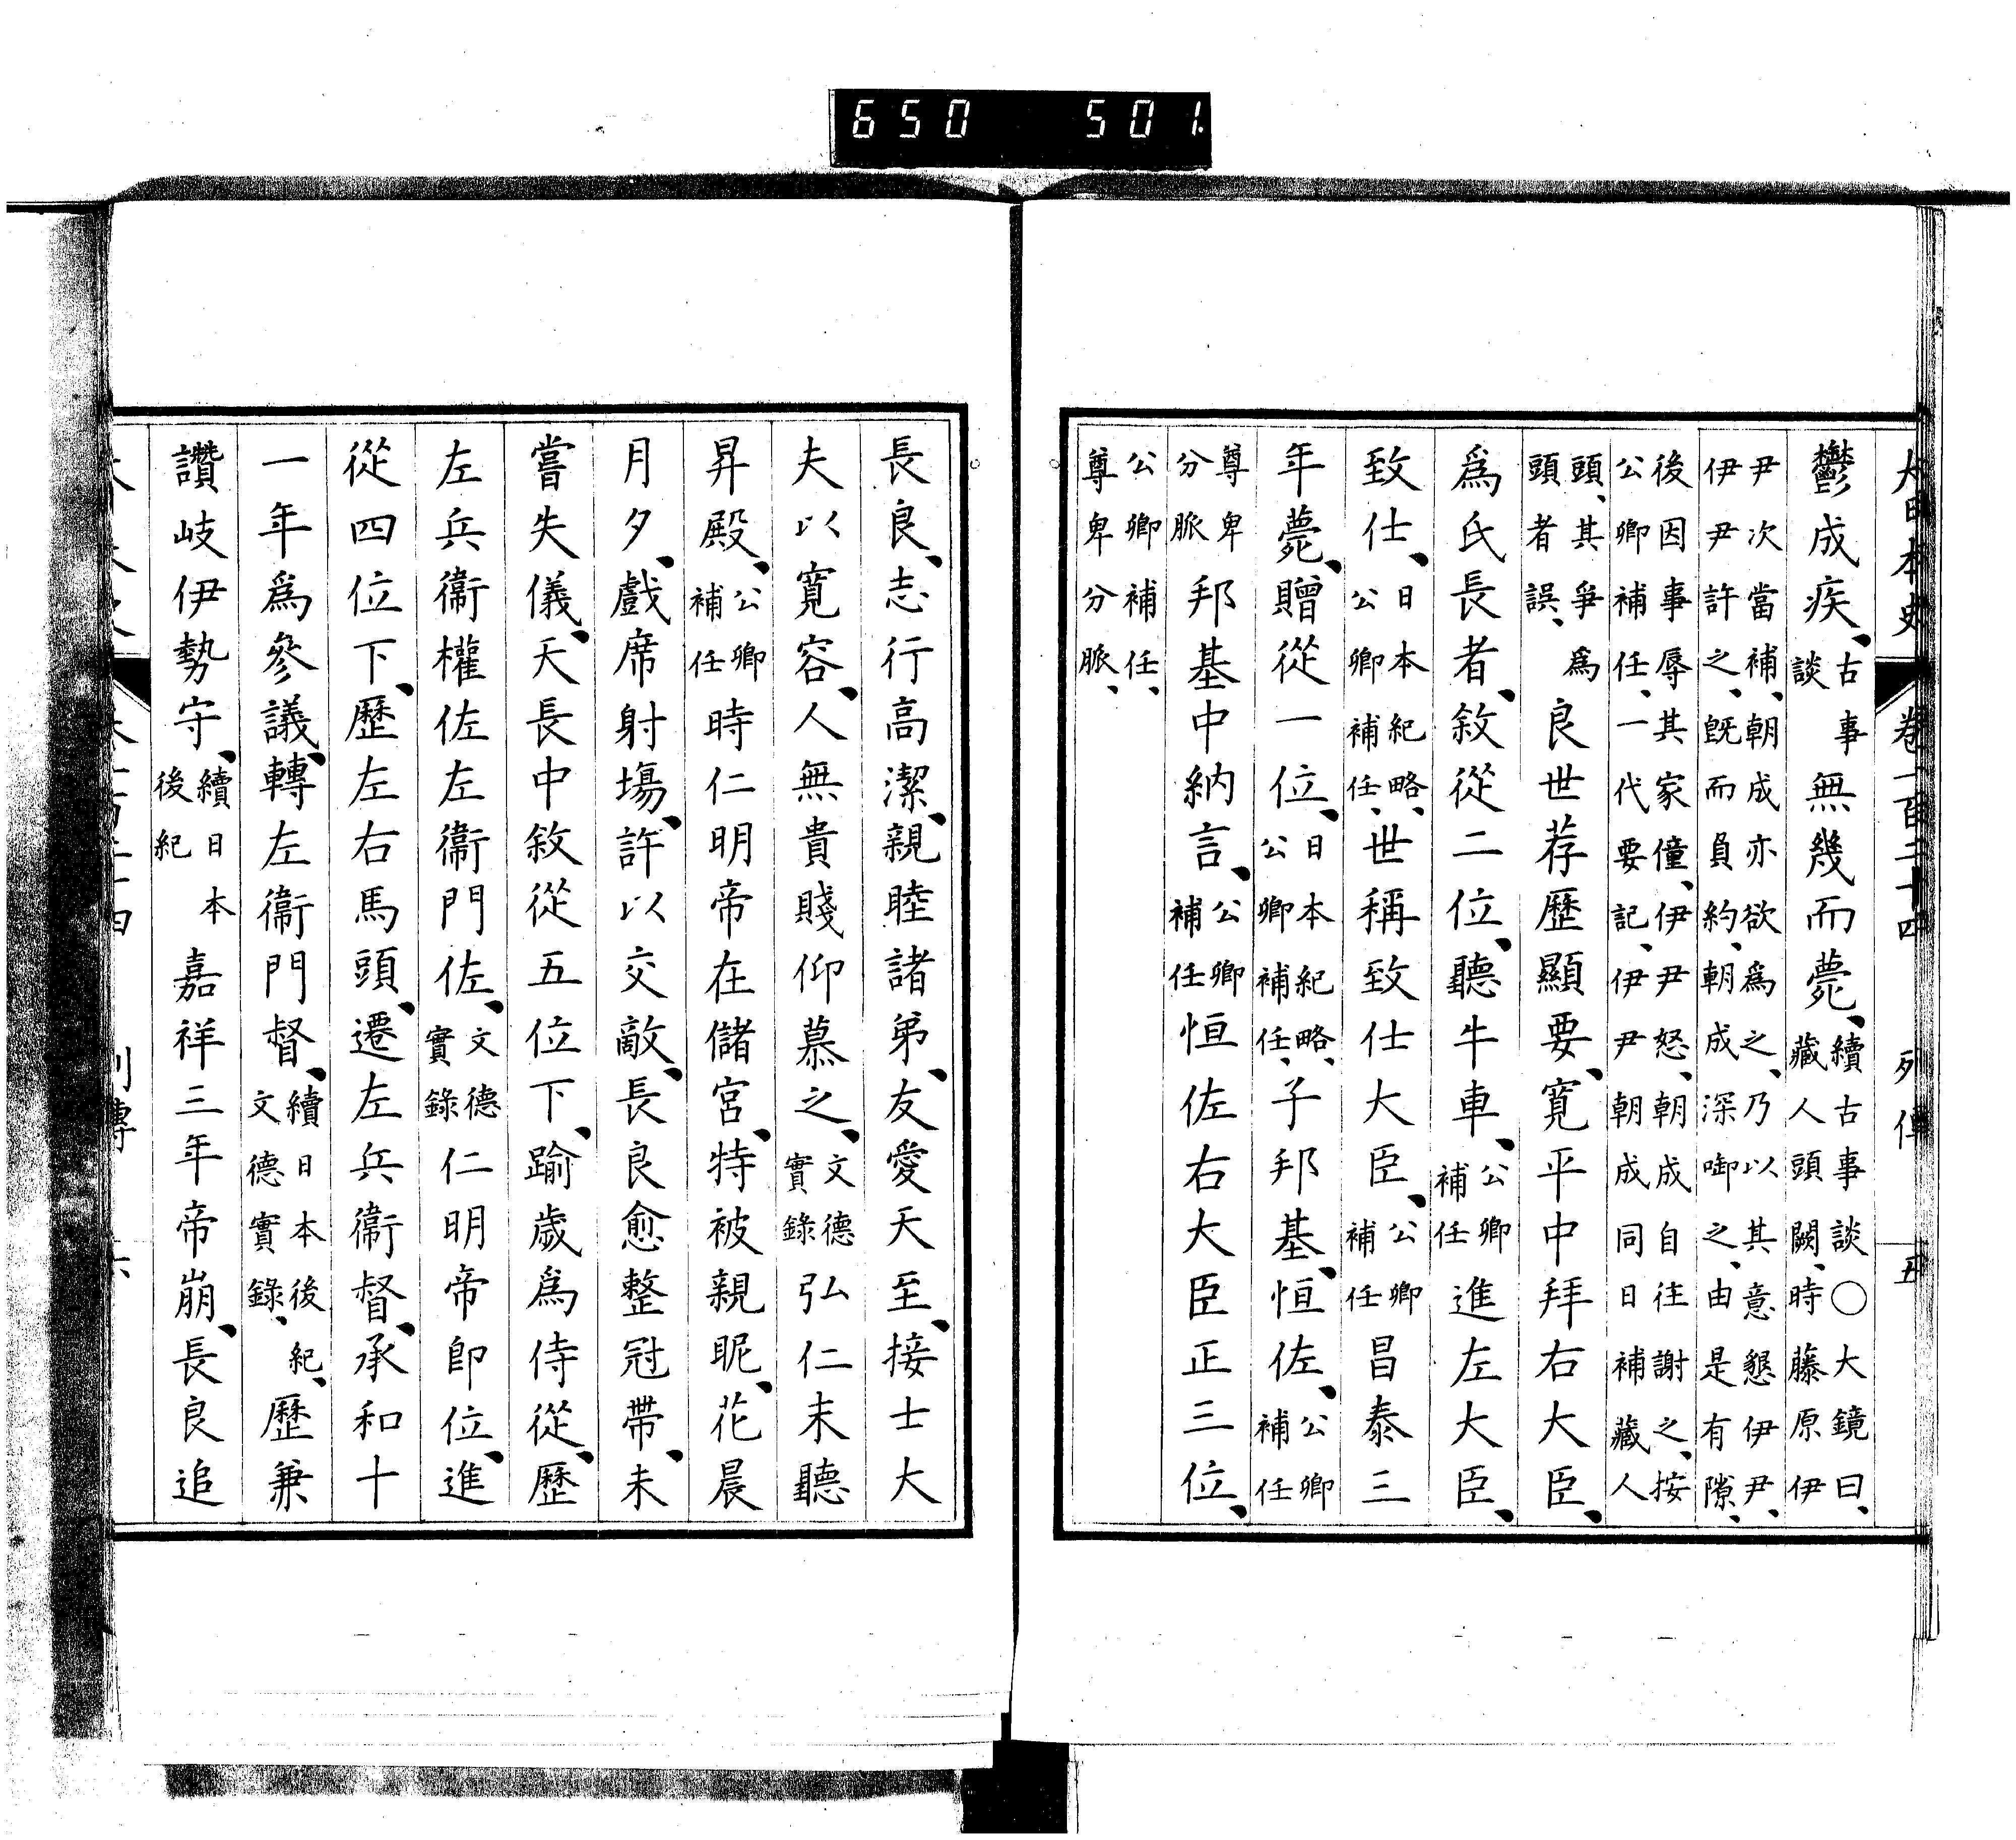 650 501.
大日本史 卷一百二十四 列傳 五
鬱成疾、古事談無幾而薨、續古事談○大鏡曰、藏人頭闕、時藤原伊
尹次當補、朝成亦欲爲之、乃以其意懇伊尹、伊尹許之、旣而負約、朝成深啣之、由是有隙、
後因事辱其家僮、伊尹怒、朝成自往謝之、按公卿補任、一代要記、伊尹朝成同日補藏人
頭、其爭爲頭者誤、良世荐歷顯要、寛平中拜右大臣、
爲氏長者、敘從二位、聽牛車、公卿補任進左大臣、
致仕、日本紀略、公卿補任、世稱致仕大臣、公卿補任昌泰三
年薨、贈從一位、日本紀略、公卿補任、子邦基、恒佐、公卿補任
尊卑分脈邦基中納言、公卿補任恒佐右大臣正三位、
公卿補任、尊卑分脈、
長良、志行高潔、親睦諸弟、友愛天至、接士大
夫以寛容、人無貴賤仰慕之、文德實錄弘仁末聽
昇殿、公卿補任時仁明帝在儲宮、特被親昵、花晨
月夕、戲席射場、許以交敵、長良愈整冠帶、未
嘗失儀、天長中敘從五位下、踰歲爲侍從、歷
左兵衞權佐左衞門佐、文德實錄仁明帝卽位、進
從四位下、歷左右馬頭、遷左兵衞督、承和十
一年爲參議、轉左衞門督、續日本後紀、文德實錄、歷兼
讚岐伊勢守、續日本後紀嘉祥三年帝崩、長良追